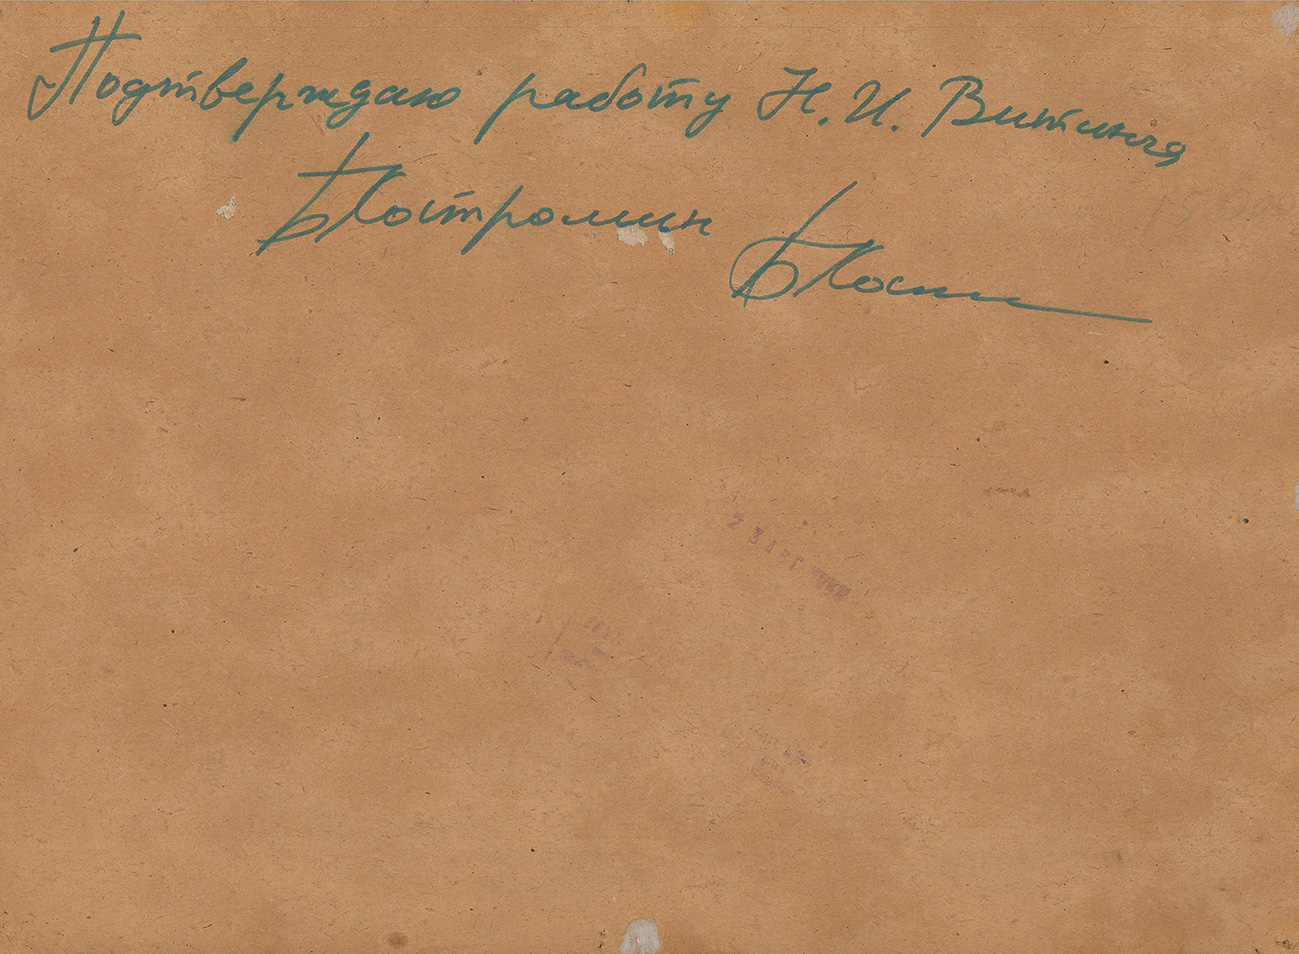 Подтверждаю работу Н. И. Витинга
Б Костромин
БКос
23 АВГ